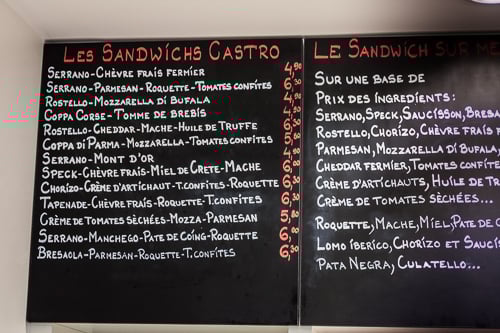 Les Sandwichs Castro
Serrano-Chèvre frais fermier 4,90
Serrano-Parmesan-Roquette-Tomates confites 6,30
Rostello-Mozzarella di Bufala
Coppa Corse-Tomme de brebis
Rostello-Cheddar-Mache-Huile de Truffe
Coppa di Parma-Mozzarella-Tomates confites
Serrano-Mont d'or
Speck-Chèvre frais-Miel de Crete-Mache
Chorizo-Crème d'artichaut-T.confites-Roquette 6,30
Tapenade-Chèvre frais-Roquette-T.confites
Crème de tomates sèchées-Mozza-Parmesan
Serrano-Manchego-Pate de Coing-Roquette
Bresaola-Parmesan-Roquette-T.confites 6,50
Le Sandwich sur
Sur une base de
Prix des ingrédients:
Serrano, Speck, Saucisson,
Rostello, Chorizo, Chèvre frais
Parmesan, Mozzarella di Bufala,
Cheddar fermier, Tomates
Crème d'artichauts, Huile de
Crème de tomates sèchées...
Roquette, Mache, Miel, Pate de
Lomo iberico, Chorizo et
Pata Negra, Culatello...